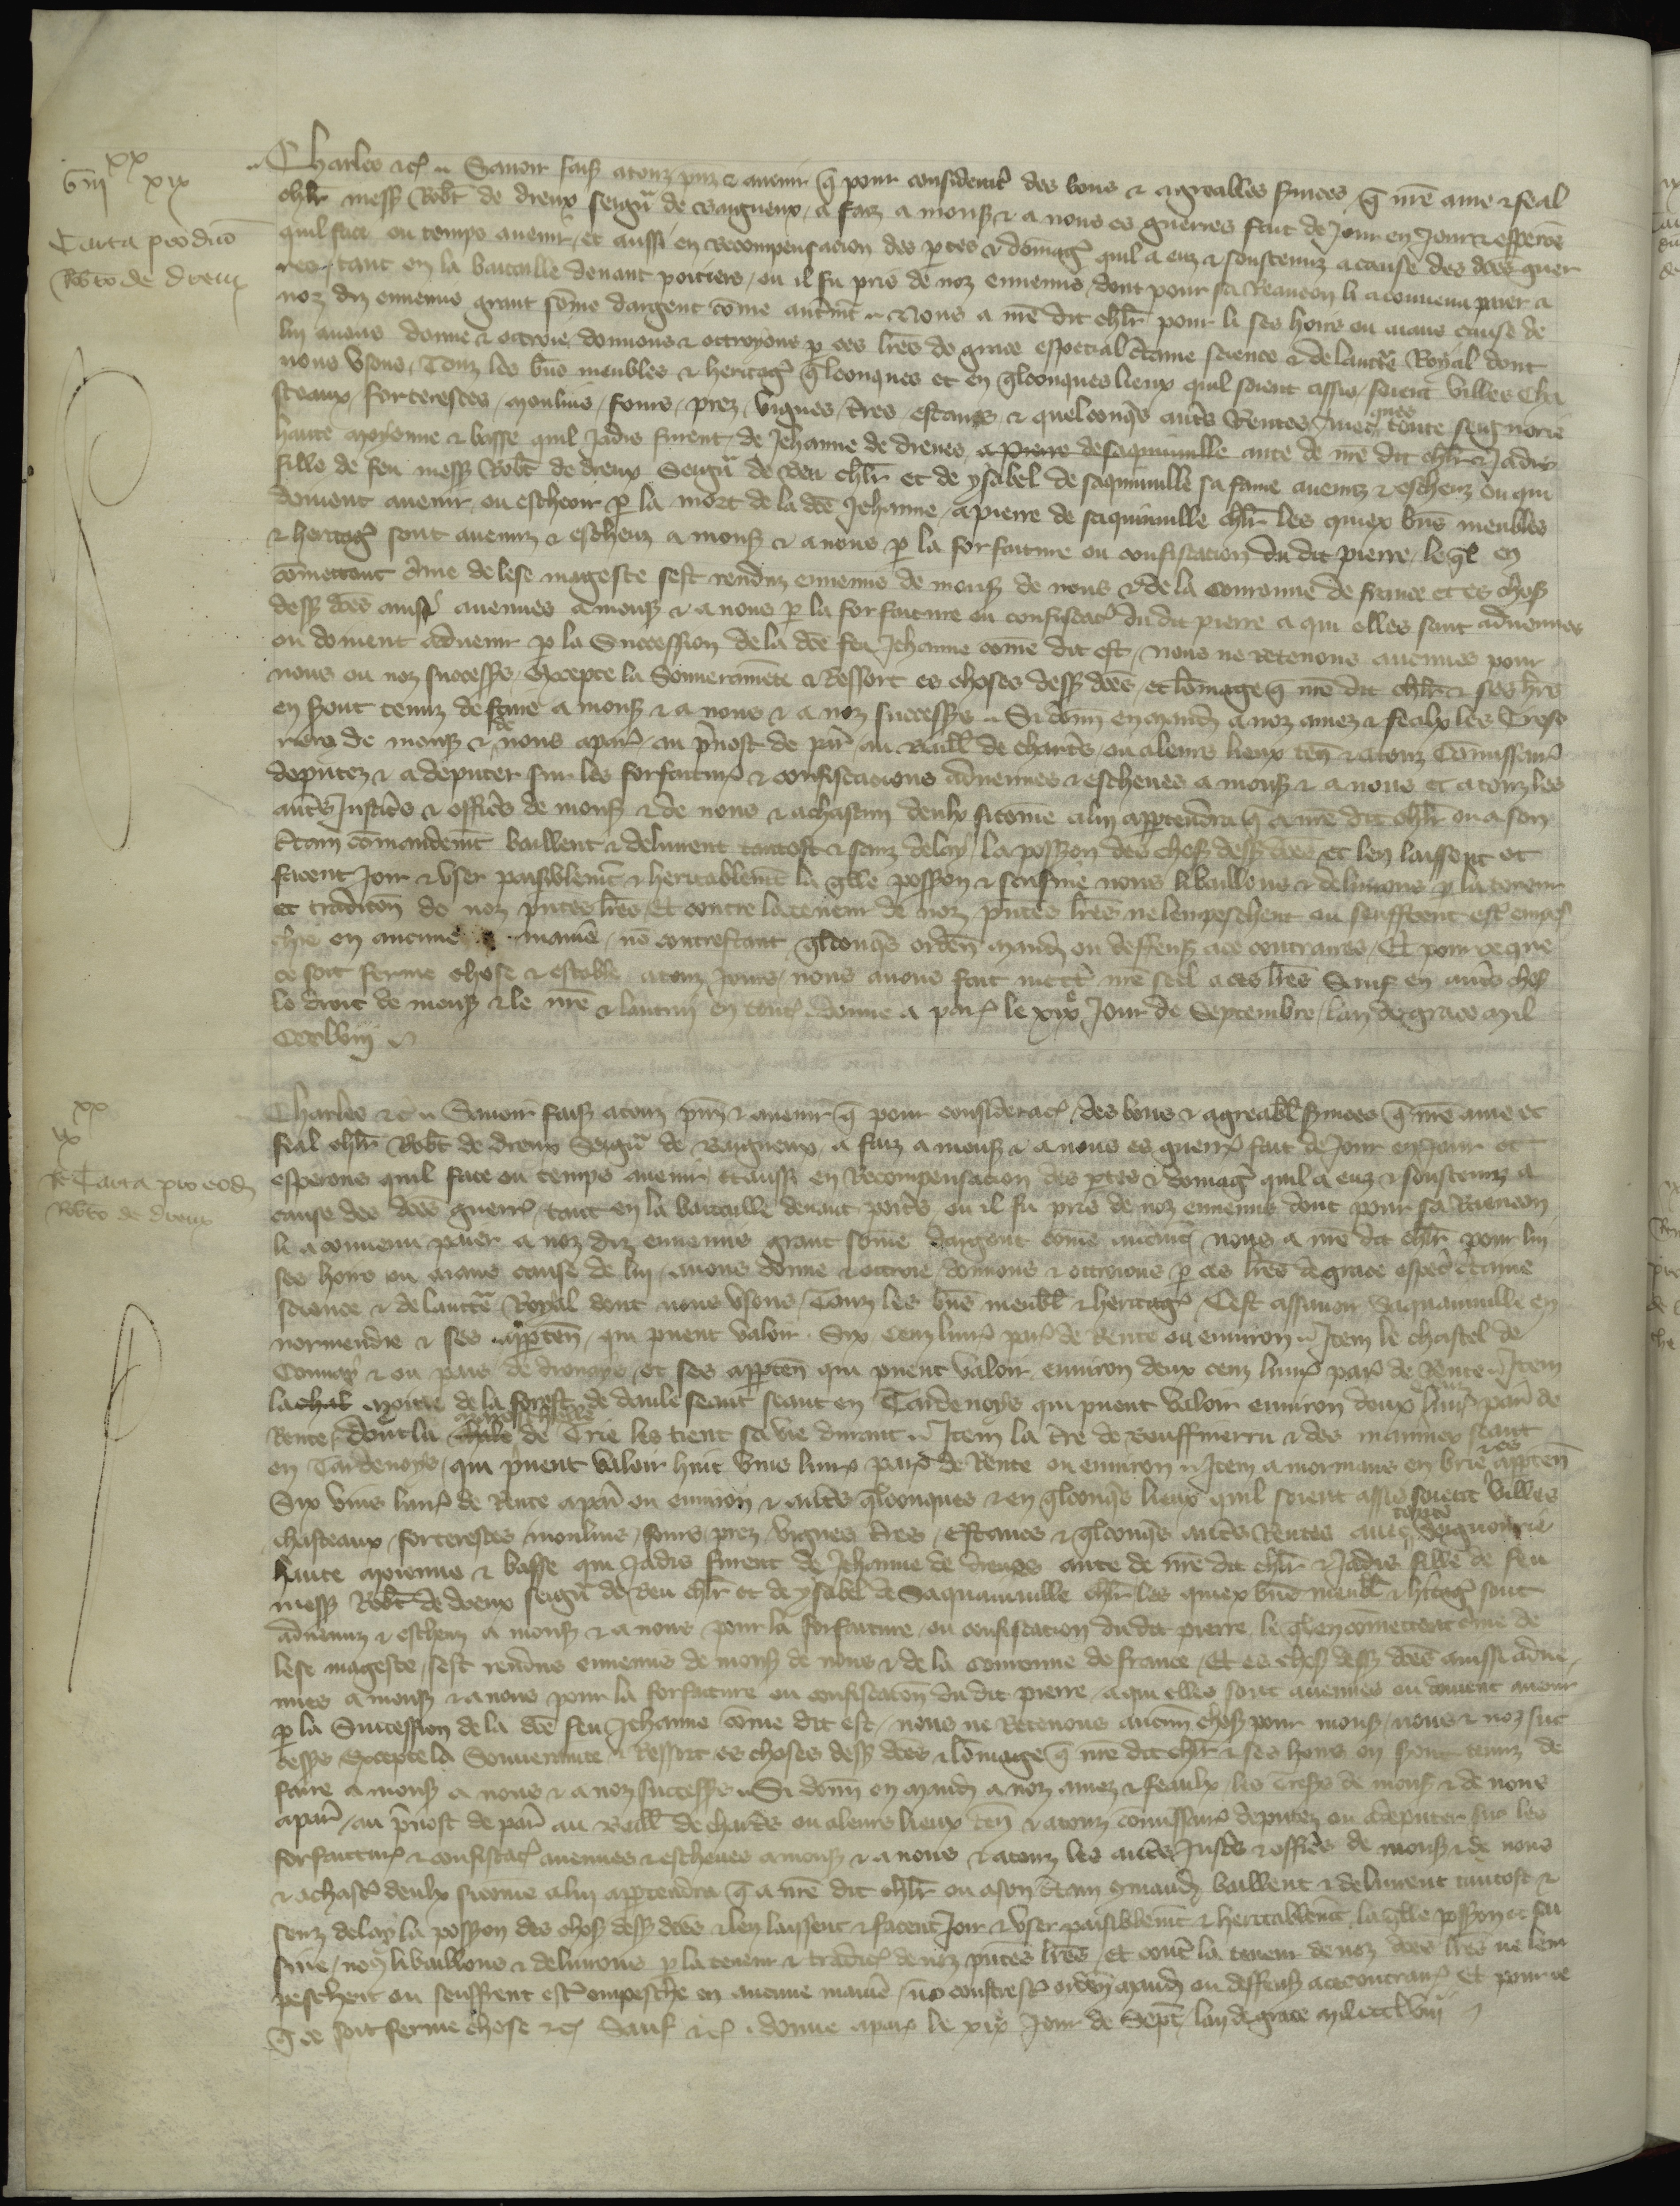 xx
viii xix
Carta pro duo
Robto de Dreux
Charles etc. Savoir faisons a touz presenz et avenir que pour consideracion des bons et agreables services que nostre ame et feal
chlr mess Robt de Dreux seigneur de Baigneux a faiz a mons et a nous es guerres fait de jour en jour et esperons
quil face ou temps avenir et aussi en recompensacion des pertes et domages quil a euz et soustenuz a cause des dces guer
res tant en la bataille devant Poitiers ou il fu pris de noz ennemis dont pour sa reancon li a convenu paier a
noz diz ennemis grant some dargent come autrement Nous a nre dit chlr pour li ses hoirs ou aians cause de
lui avons donne et octroie donnons et octroyons par ces lres de grace especial certaine science et de lauctorite Royal dont
nous usons Touz les biens meubles et heritages quelconques et en quelconques lieux quil soient assis soient villes cha
steaux forteresces moulins fours prez vignes terres estangs et quelconques autres rentes avec toute seignorie
haute moyenne et basse quil jadis furent de Jehanne de Dreues a Pierre de Saquainville ante de nre dit chlr et jadis
fille de feu mess Robt de Dreux seigneur de Beu chlr et de Ysabel de Saquinville sa fame avenuz et escheuz ou qui
doivent avenir ou escheoir par la mort de la dce Jehanne a Pierre de Saquinville chlr les quiex biens meubles
et heritages sont avenuz et escheuz a mons et a nous par la forfaiture ou confiscacion du dit Pierre lequel en
comettant crime de lese mageste sest renduz ennemis de mons de nous et de la couronne de France et es choses
dess dces ainssi avenues a mons et a nous par la forfaiture ou confiscacion du dit Pierre a qui elles sont advenues
ou doivent advenir par la succession de la dce feu Jehanne come dit est nous ne retenons aucunes pour
nous ou noz successeurs excepte la souverainete et ressort es choses dess dces et lomage que nre dit chlr et ses hoirs
en sont tenuz de faire a mons et a nous et a noz successeurs Si donn en mand a noz amez et feaulx les treso
riers de mons et de nous a Paris au prevost de Paris au Bailli de Chartres ou a leurs lieux ten et a touz comissaires
deputez et a deputer sur les forfaitures et confiscacions advenues et escheues a mons et a nous et a touz les
autres justiciers et officiers de mons et de nous et a chascun deulx sicome a lui appartendra que a nre dit chlr ou a son
certain comandement baillent et delivrent tantost et sanz delay la possession des choses dess dces et len laissent et
facent joir et user paisiblement et heritablement la quelle possession et saisine nous li baillons et delivrons par la teneur
et tradicion de noz presentes lres Et contre la teneur de noz presentes lres ne lempeschent ou seuffrent estre empes
chie en aucune maniere non contrestant quelconques ordenances mandemens ou deffenses a ce contraires Et pour ce que
ce soit ferme chose et estable a touz jours nous avons fait mettre nre seel a ces lres Sauf en autres choses
le droit de mons et le nre et lautrui en toutes Donne a Paris le xix jour de Septembre lan de grace mil
CCClviii
xx
ix
It Carta pro eodem
Robto de Dreux
Charles etc. Savoir faisons a touz presens et avenir que pour consideracion des bons et agreables services que nre ame et
feal chlr Robt de Dreux seigneur de Baigneux a faiz a mons et a nous es guerres fait de jour en jour et
esperons quil face ou temps avenir et aussi en recompensacion des pertes et domages quil a euz et soustenuz a
cause des dces guerres tant en la bataille devant Poitiers ou il fu pris de noz ennemis dont pour sa reancon
li a convenu paier a noz diz ennemis grant some dargent come autrement nous a nre dit chlr pour lui
ses hoirs ou aians cause de lui avons donne et octroie donnons et octroions par ces lres de grace especial certaine
science et de lauctorite Royal dont nous usons Touz les biens meubles et heritages Cest assavoir Saquainville en
normendie et ses apparten qui puent valoir six cenz livres par de rente ou environ Item le chastel de
et ou pais de et ses apparten qui puent valoir environ deux cenz livres par de rente Item
la chal moitie de la forest de Daule seant seant en Tardenoys qui puent valoir environ deux livres par de
rente dont la mareschalle de Trie les tient sa vie durant Item la terre de et des seant
en Tardenoys qui puent valoir huit vins livres par de rente ou environ Item a Mormans en Brie et es apparten
six vins livres de rente a par ou environ et autres quelconques et en quelconques lieux quil soient assis soient villes
chasteaux forteresces moulins fours prez vignes terres estancs et quelconques autres rentes avec toute seignourie
haute moienne et basse qui jadis furent de Jehanne de Dreues ante de nre dit chlr et jadis fille de feu
mess Robt de Dreux seigneur de Beu chlr et de Ysabel de Saquainville chlr les quiex biens meubles et heritages sont
advenuz et escheuz a mons et a nous pour la forfaiture ou confiscacion du dit Pierre le quel en comettent crime de
lese mageste sest renduns ennemis de mons de nous et de la couronne de France Et es choses dess dces ainssi adve
nues a mons et a nous pour la forfaiture ou confiscacion du dit Pierre a qui elles sont avenues ou doivent avenir
par la succession de la dce feu Jehanne come dit est nous ne retenons aucune chose pour mons nous et noz suc
cess excepte la souverainete et ressort es choses dess dces et lomage que nre dit chlr et ses hoirs en sont tenuz de
faire a mons a nous et a noz success Si donn en mand a noz amez et feaulx les tres de mons et de nous
a Par au prevost de Par au Baill de Chartres ou a leurs lieux ten et a touz comissaires deputez ou a deputer sur les
forfaitures et confiscac avenues et escheues a mons et a nous et a touz les autres justic et officiers de mons et de nous
et a chasc deulx sicome a lui appartendra que a nre dit chlr ou a son certain comand baillent et delivrent tantost et
senz delay la possession des choses dess dces et len laissent et facent joir et user paisiblement et heritablement la quelle possession et sai
sine nous li baillons et delivrons par la teneur et tradic de noz presentes lres Et contre la teneur de noz dces lres ne lem
peschent ou seuffrent estre empesche en aucune maniere non contrest orden mand ou deffens a ce contraires Et pour ce
que ce soit ferme chose etc Sauf etc donne a Par le xix jour de Sept lan de grace mil ccclviii